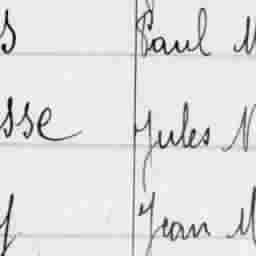 s Paul M
sse Jules N
y Jean M